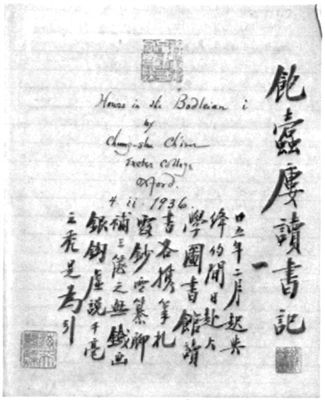 飽蠹廔讀書記
一
Hours in the Bodleian i
by
Chung-shu Ch'ien
Exeter College
Oxford.
4. ii. 1936.
廿五年二月起與
絳約間日赴大
學圖書館讀
書各攜筆札
露鈔雪纂聊
補三篋之無鐵画
銀鉤虛說千毫
之禿是為引